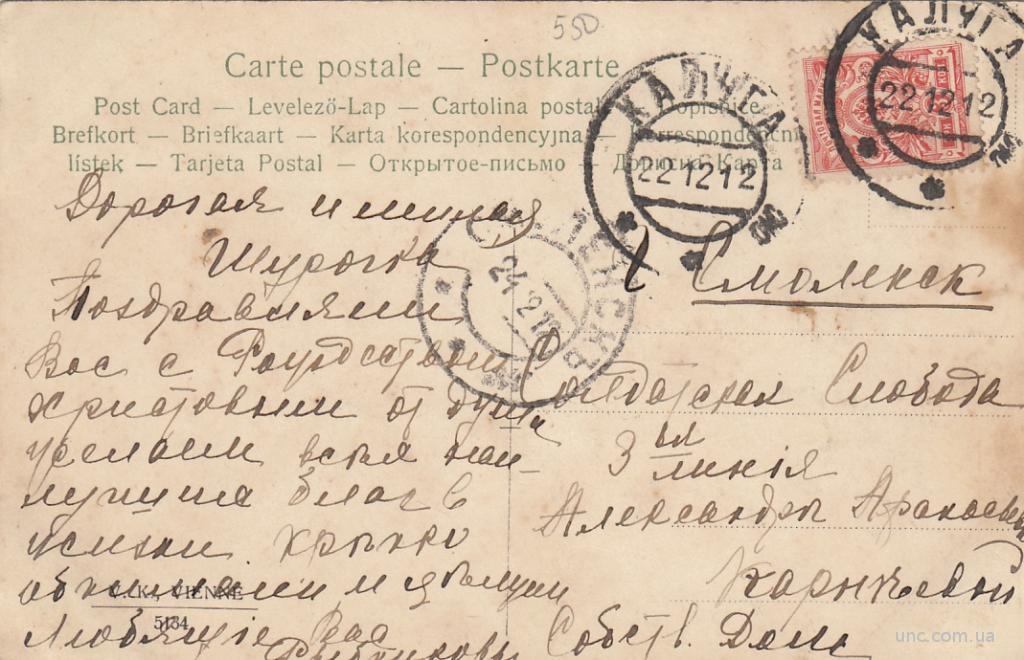 550
Carte postale — Postkarte
Post Card — Levelező-Lap — Cartolina postale
Brefkort — Briefkaart — Karta korespondencyjna — Korrespondenční
lístek — Tarjeta Postal — Открытое-письмо — Дописна Карта
КАЛУГА
22 12 12
КАЛУГА
22 12 12
СМОЛЕНСКЪ
Дорогая и милая
Шурочка
Поздравляем
Вас с Рождеством
Христовым от души
желаем всех наи-
лучших благ в
жизни крепко
обнимаем и целуем
Любящие Вас
V.K. VIENNE
5134
г Смоленск
Солдатская Слобода
3 ья линия
Александры
Собств. Дом
unc.com.ua